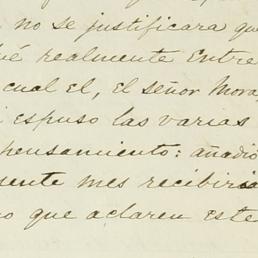 no se justificara que
é realmente Entre
cual el, el señor Mora
espuso las varias
pensamiento: añadio
sente mes recibiria
o que aclaren este